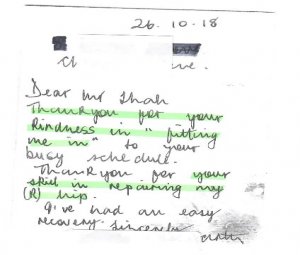 26.10.18
Dear Mr Shah
Thankyou for your
kindness in "fitting
me in" to your
busy schedule.
Thankyou for your
skill in repairing my
(R) hip.
I've had an easy
recovery. Sincerely